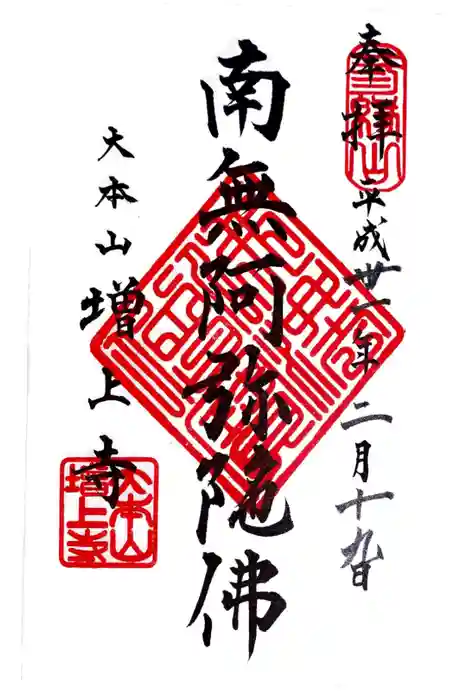 奉拝
平成丗一年二月十九日
南無阿弥陀佛
大本山増上寺
大本山
増上寺